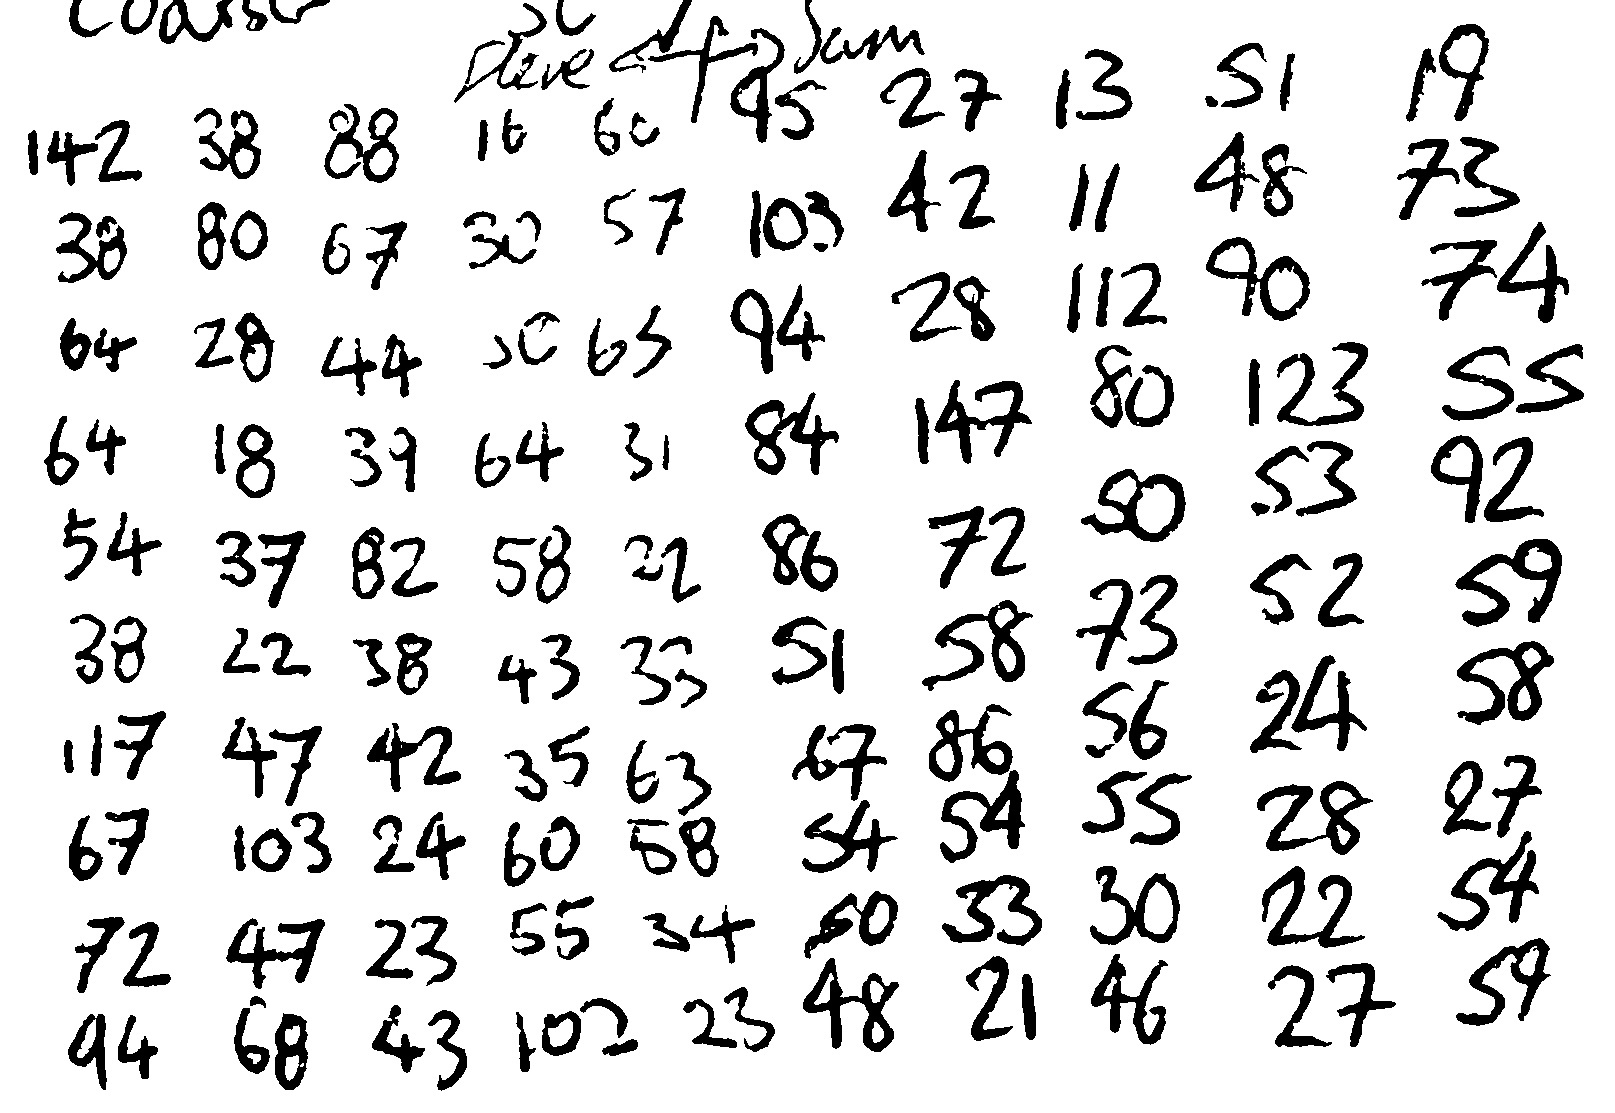 Coarse
SC
Steve <-|-> Sam
142 38 88 16 60 95 27 13 51 19
38 80 67 30 57 103 42 11 48 73
64 28 44 50 63 94 28 112 90 74
64 18 39 64 31 84 147 80 123 55
54 37 82 58 22 86 72 50 53 92
38 22 38 43 33 51 58 73 52 59
117 47 42 35 63 67 86 56 24 58
67 103 24 60 58 54 54 55 28 27
72 47 23 55 34 50 33 30 22 54
94 68 43 102 23 48 21 46 27 59